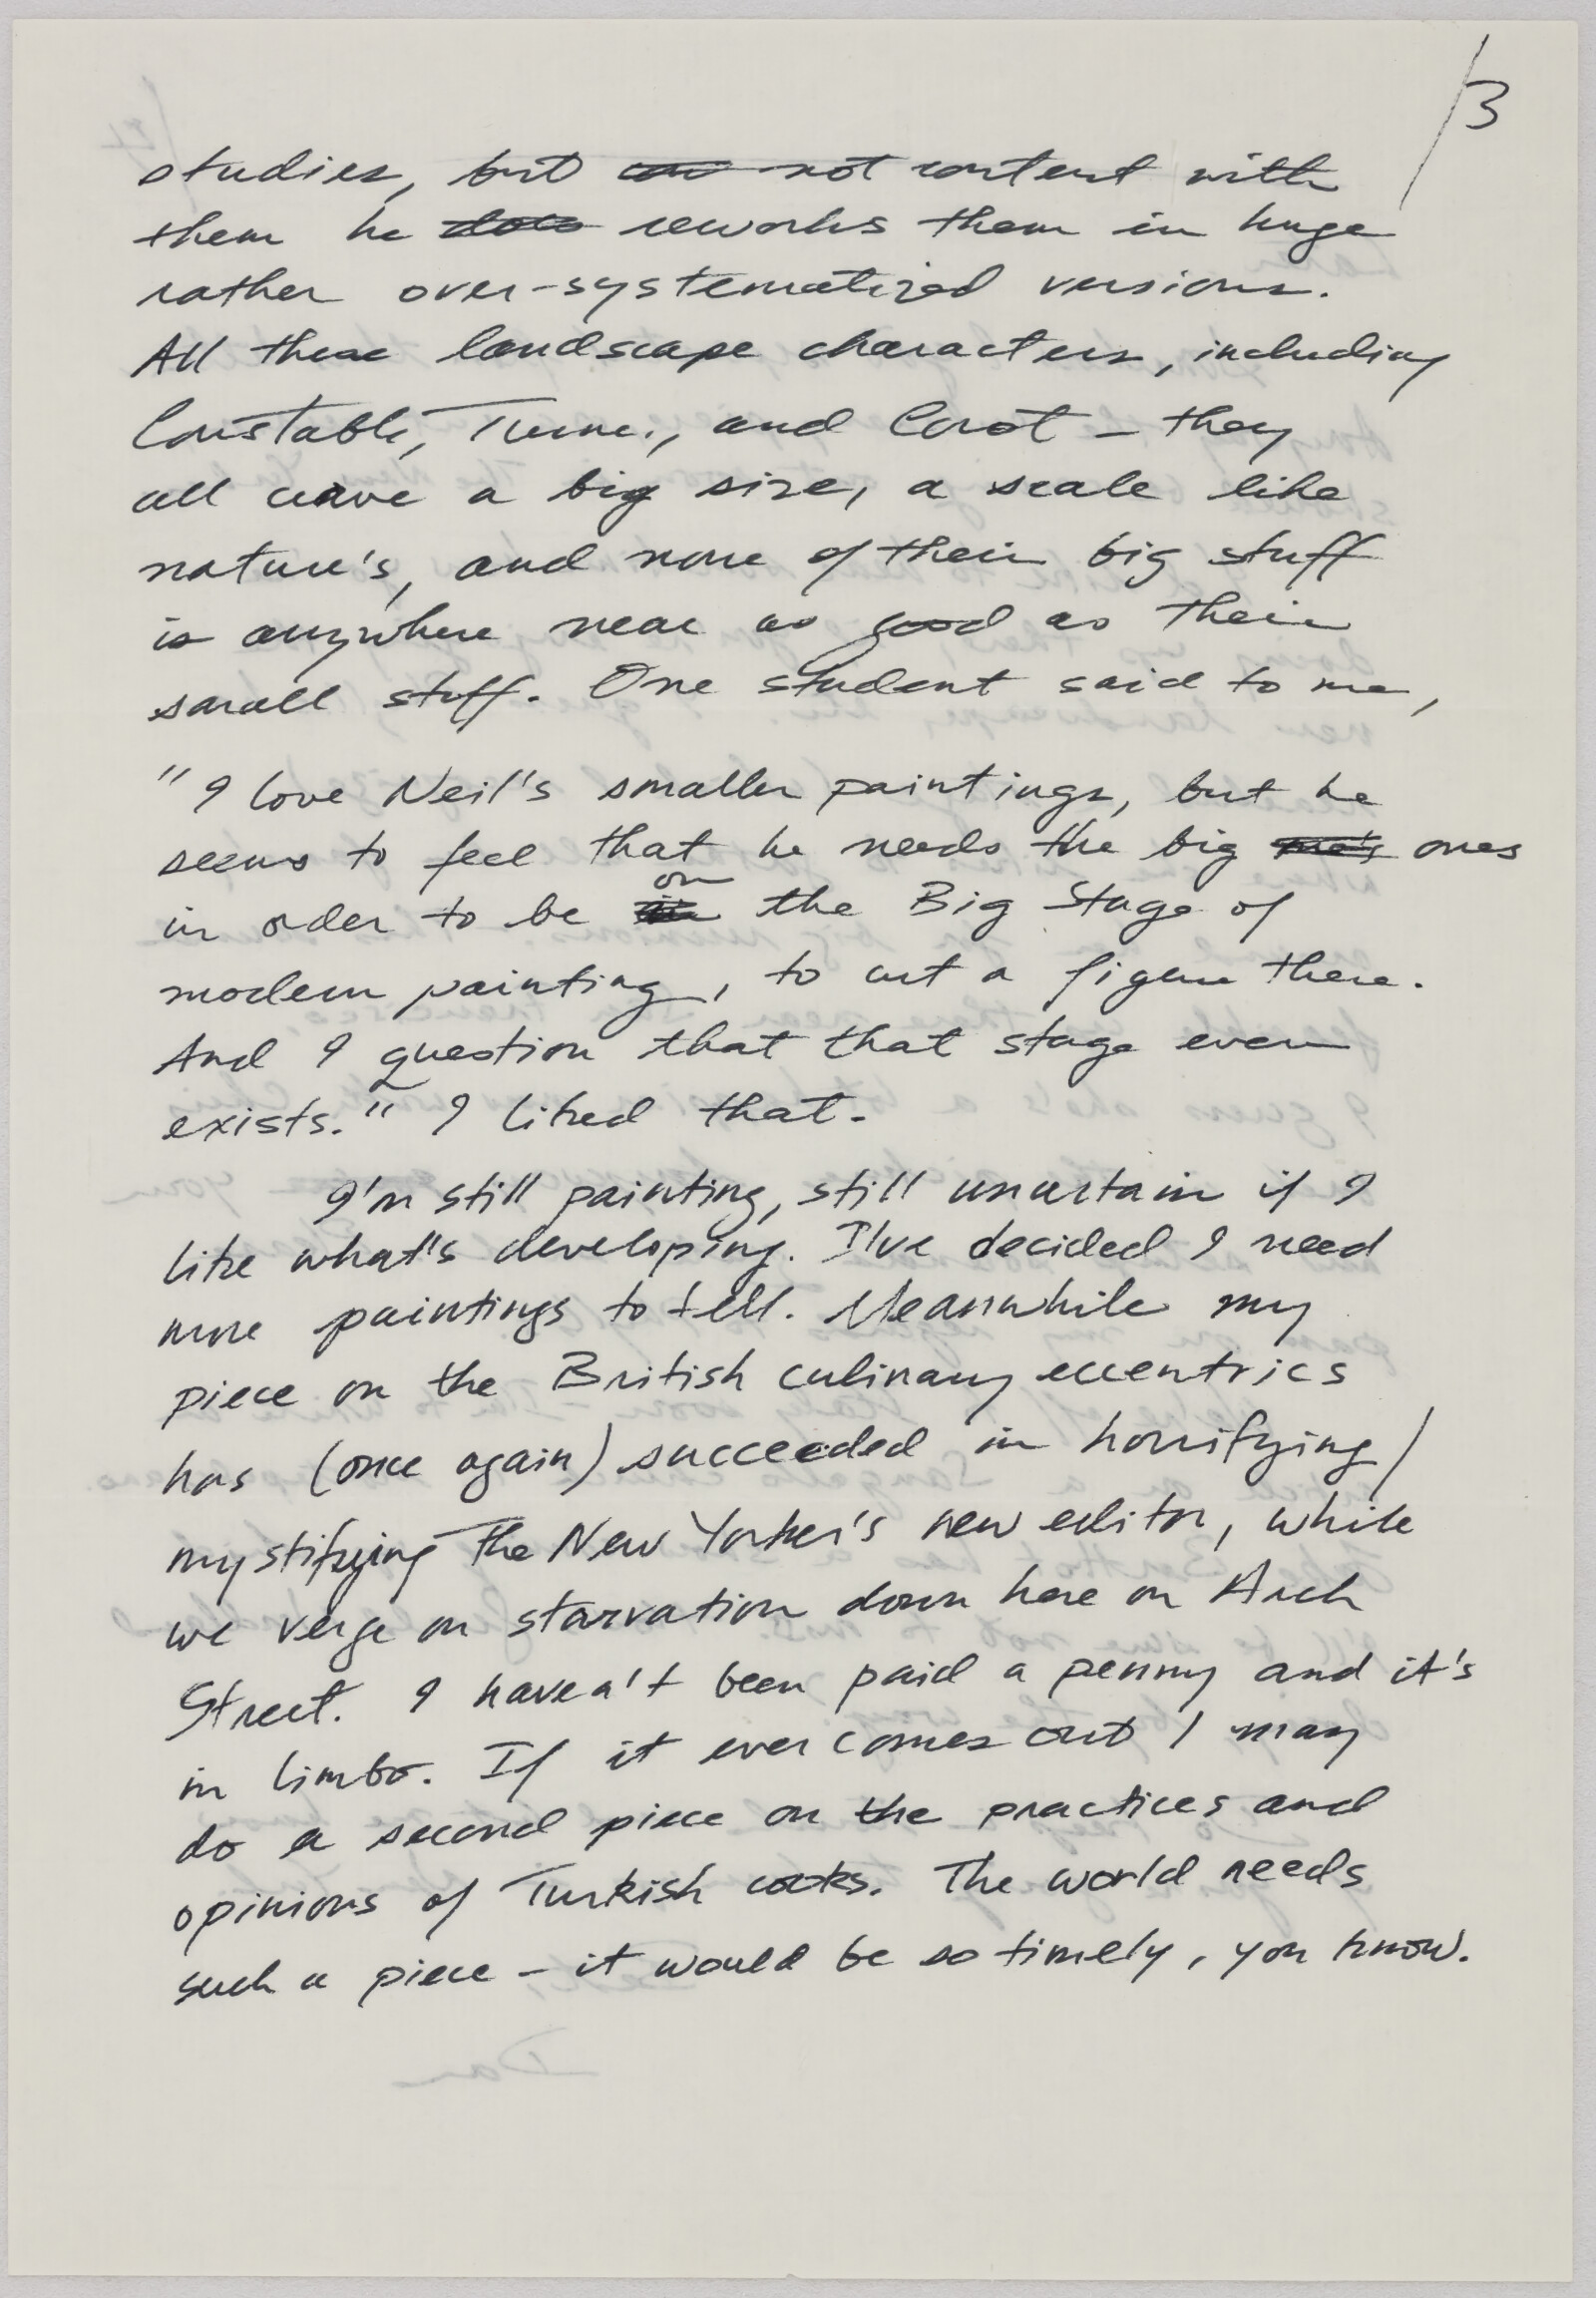 3
studies, but not content with
them he reworks them in huge
rather over-systematized versions.
All these landscape characters, including
Constable, Turner, and Corot – they
all crave a big size, a scale like
nature's, and none of their big stuff
is anywhere near as good as their
small stuff. One student said to me,
"I love Neil's smaller paintings, but he
seems to feel that he needs the big one's ones
on
in order to be in the Big Stage of
modern painting, to cut a figure there.
And I question that that stage even
exists." I liked that.
I'm still painting, still uncertain if I
like what's developing. I've decided I need
more paintings to tell. Meanwhile my
piece on the British culinary eccentrics
has (once again) succeeded in horrifying/
mystifying The New Yorker's new editor, while
we verge on starvation down here on Arch
Street. I haven't been paid a penny and it's
in limbo. If it ever comes out I may
do a second piece on the practices and
opinions of Turkish cooks. The world needs
such a piece – it would be so timely, you know.